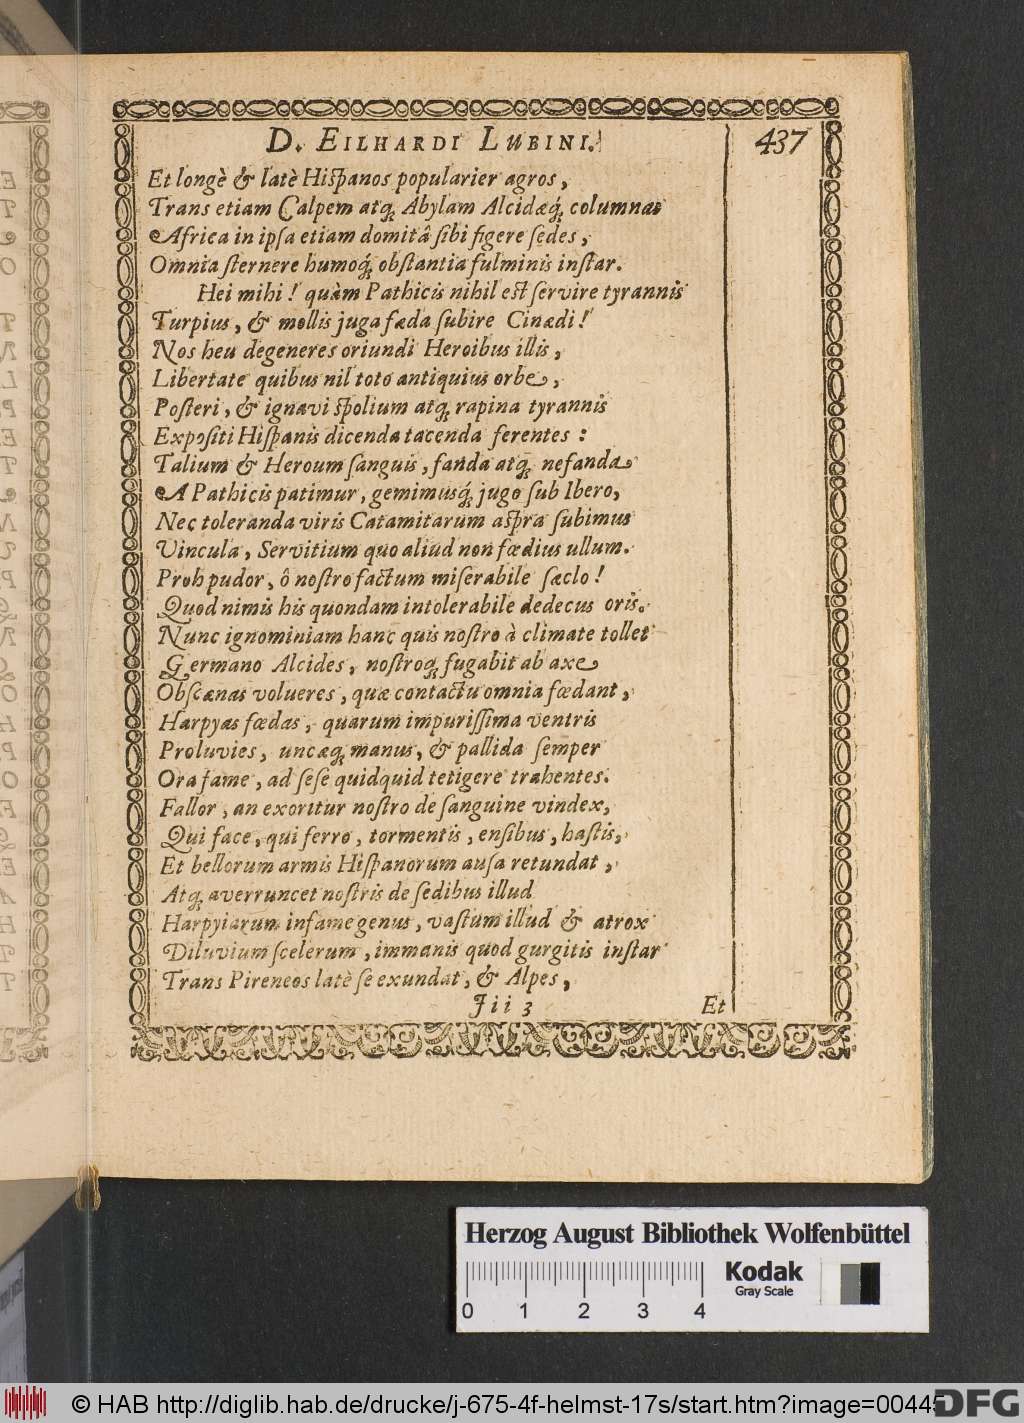 D. EILHARDI LUBINI. 437
Et longè & latè Hiſpanos popularier agros,
Trans etiam Calpem atq; Abylam Alcidæq́; columnas
Africa in ipſa etiam domitâ ſibi figere ſedes,
Omnia ſternere humoq́; obſtantia fulminis inſtar.
Hei mihi! quàm Pathicis nihil eſt ſervire tyrannis
Turpius, & mollis juga fæda ſubire Cinædi!
Nos heu degeneres oriundi Heroibus illis,
Libertate quibus nil toto antiquius orbe,
Poſteri, & ignavi ſpolium atq; rapina tyrannis
Expoſiti Hiſpanis dicenda tacenda ferentes:
Talium & Heroum ſanguis, fanda atq; nefanda
A Pathicis patimur, gemimusq́; jugo ſub Ibero,
Nec toleranda viris Catamitarum aſpra ſubimus
Vincula, Servitium quo aliud non fœdius ullum.
Proh pudor, ô noſtro factum miſerabile ſæclo!
Quod nimis his quondam intolerabile dedecus oris.
Nunc ignominiam hanc quis noſtro à climate tollet
Germano Alcides, noſtroq; fugabit ab axe
Obſcænas volueres, quæ contactu omnia fœdant,
Harpyas fœdas, quarum impuriſſima ventris
Proluvies, uncæq; manus, & pallida ſemper
Ora fame, ad ſeſe quidquid tetigere trahentes.
Fallor, an exoritur noſtro de ſanguine vindex,
Qui face, qui ferro, tormentis, enſibus, haſtis,
Et bellorum armis Hiſpanorum auſa retundat,
Atq; averruncet noſtris de ſedibus illud
Harpyiarum infame genus, vaſtum illud & atrox
Diluvium ſcelerum, immanis quod gurgitis inſtar
Trans Pireneos latè ſe exundat, & Alpes,
Iii 3 Et
Herzog August Bibliothek Wolfenbüttel
0 1 2 3 4
Kodak
Gray Scale
© HAB http://diglib.hab.de/drucke/j-675-4f-helmst-17s/start.htm?image=00445
DFG